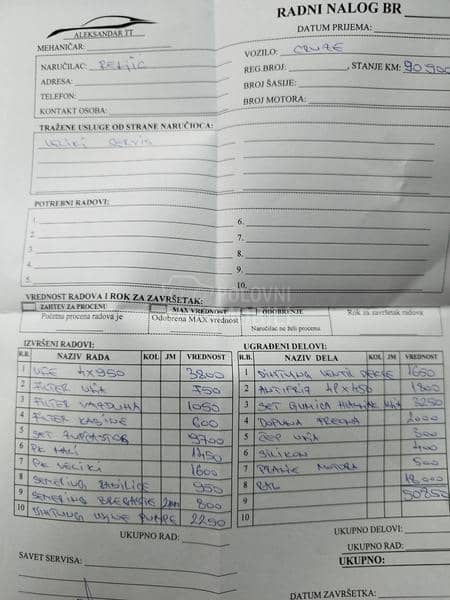 ALEKSANDAR TT
RADNI NALOG BR
DATUM PRIJEMA:
MEHANIČAR:
NARUČILAC:
ADRESA:
TELEFON:
KONTAKT OSOBA:
VOZILO: CRUZE
REG.BROJ: , STANJE KM: 90900
BROJ ŠASIJE:
BROJ MOTORA:
TRAŽENE USLUGE OD STRANE NARUČIOCA:
VELIKI SERVIS
POTREBNI RADOVI:
1.
2.
3.
4.
5.
6.
7.
8.
9.
10.
POLOVNI
VREDNOST RADOVA I ROK ZA ZAVRŠETAK:
ZAHTEV ZA PROCENU
Početna procena radova je
MAX VREDNOST
Odobrena MAX vrednost
ODOBRENJE
Naručilac ne želi procenu.
Rok za završetak radova
IZVRŠENI RADOVI:
R.B. NAZIV RADA KOL JM VREDNOST
1 ULJE 4x950 3800
2 FILTER ULJA 750
3 FILTER VAZDUHA 1050
4 FILTER KABINE 600
5 SET ZUPČASTOG 9700
6 PK MALI 1450
7 PK VELIKI 1600
8 SEMERING RADILICE 950
9 SEMERING BREGASTE 2 800
10 DIHTUNG PUMPE 2250
UKUPNO RAD:
UGRAĐENI DELOVI:
R.B. NAZIV DELA KOL JM VREDNOST
1 DIHTUNG VENTIL DEKLE 1650
2 ANTIFRIZ 4 x450 1800
3 SET GUMICA HLADNJAK ULJA 3250
4 2000
5 ČEP ULJA 300
6 SILIKON 400
7 PRANJE MOTORA 500
8 RAD 18.000
9 50850
10
UKUPNO DELOVI:
UKUPNO RAD:
UKUPNO:
SAVET SERVISA:
DATUM ZAVRŠETKA: